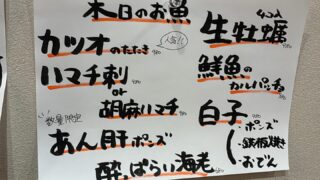 本日のお魚
カツオのたたき
人気!!
ハマチ刺
or
胡麻ハマチ
数量限定
あん肝ポンズ
酔っぱらい海老
4コ入
生牡蠣
鮮魚の
カルパッチョ
白子
ポンズ
鉄板焼き
おでん